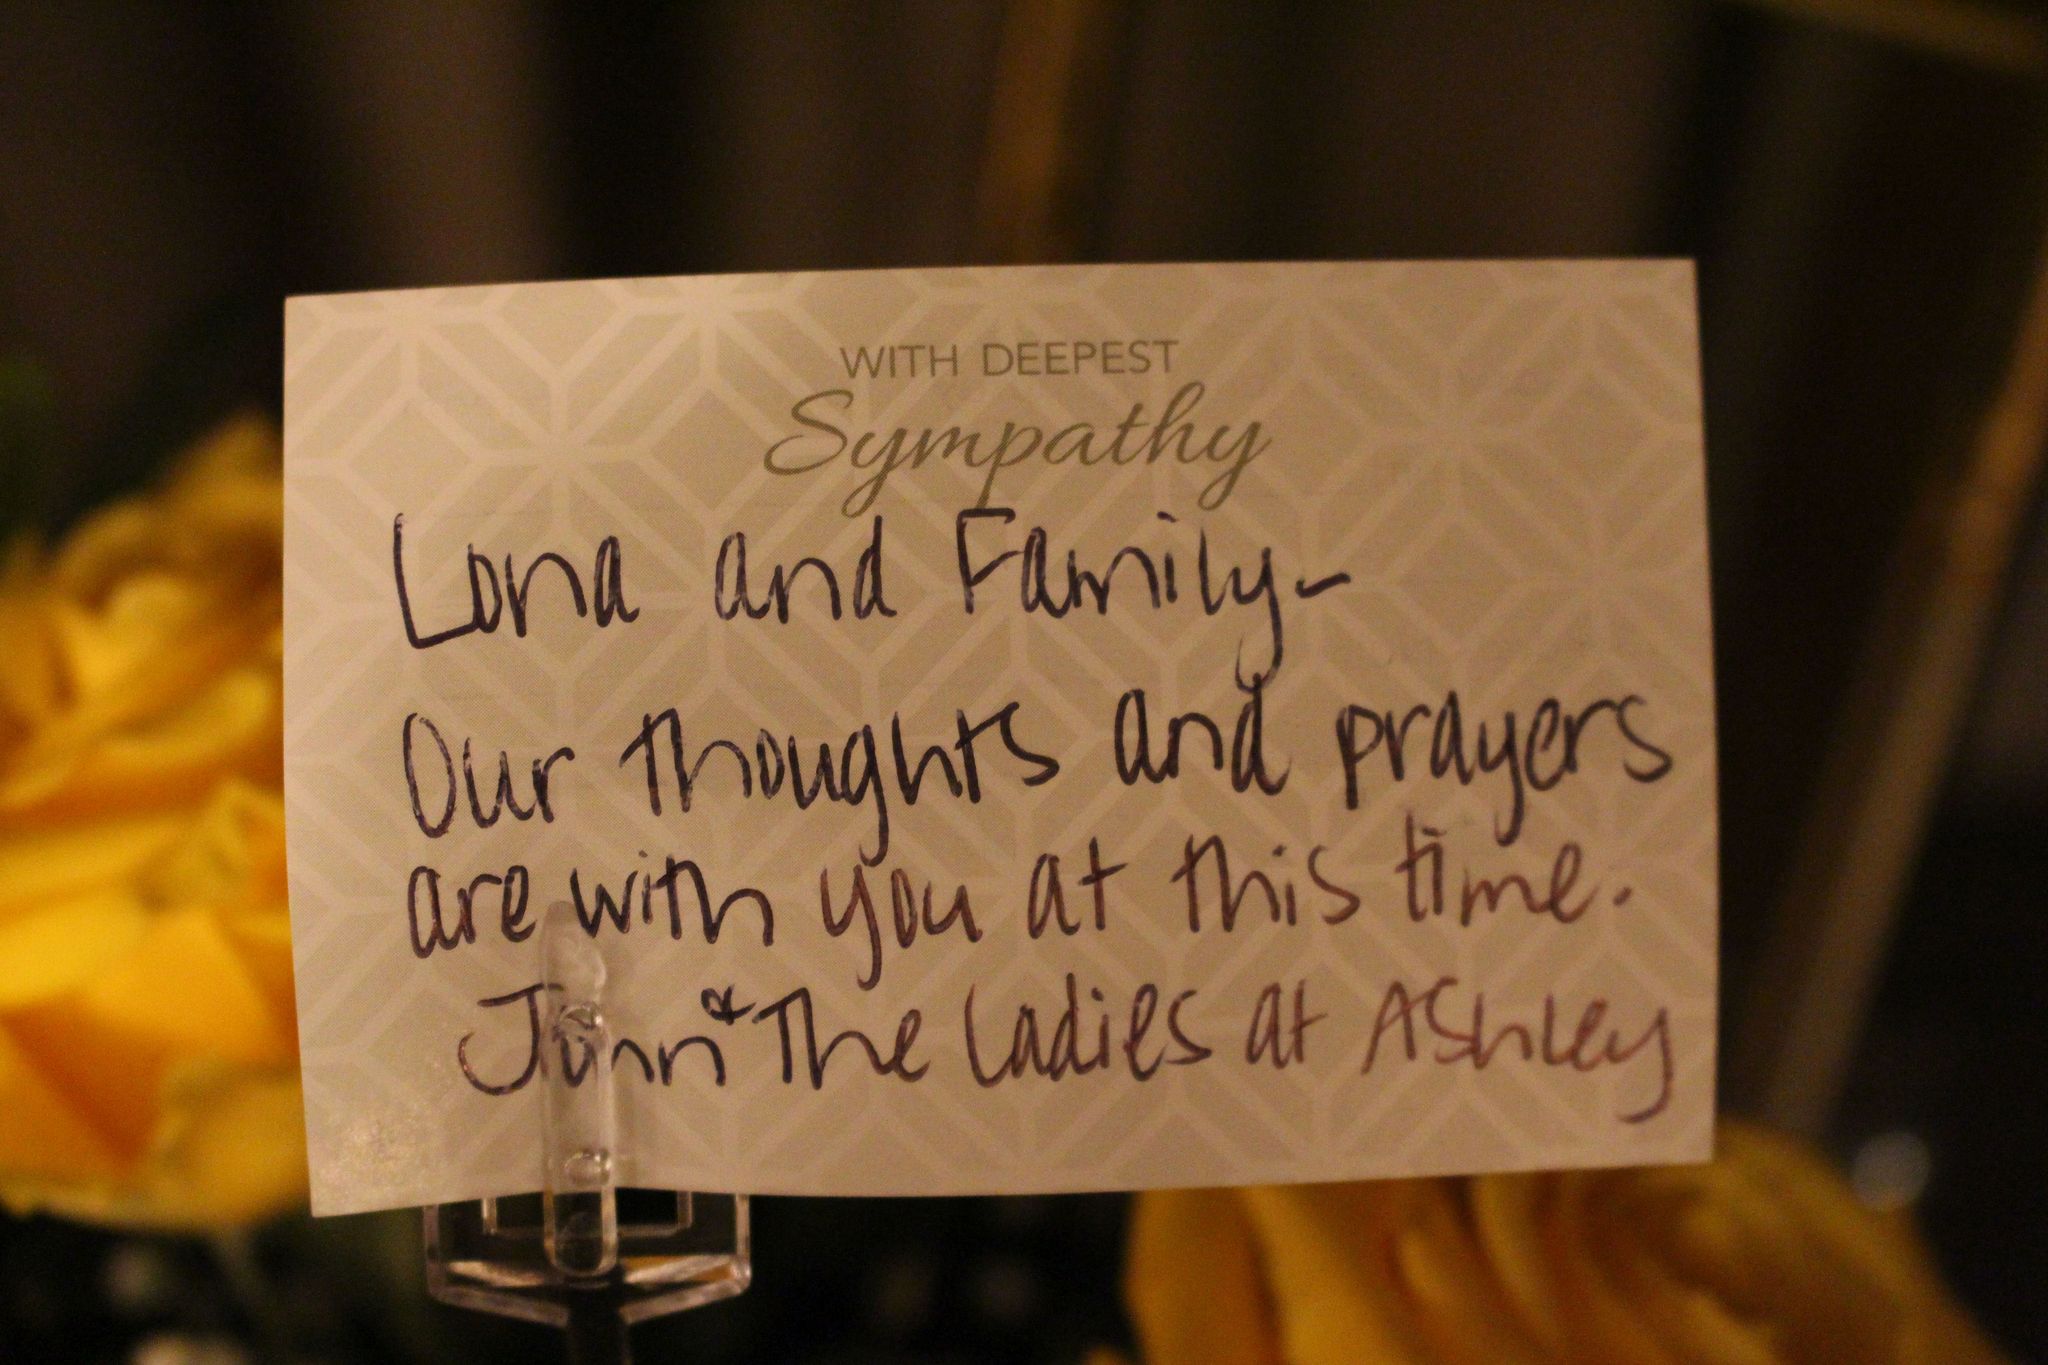 WITH DEEPEST
Sympathy
Lona and Family-
Our thoughts and prayers
are with you at this time.
& The Ladies at Ashley